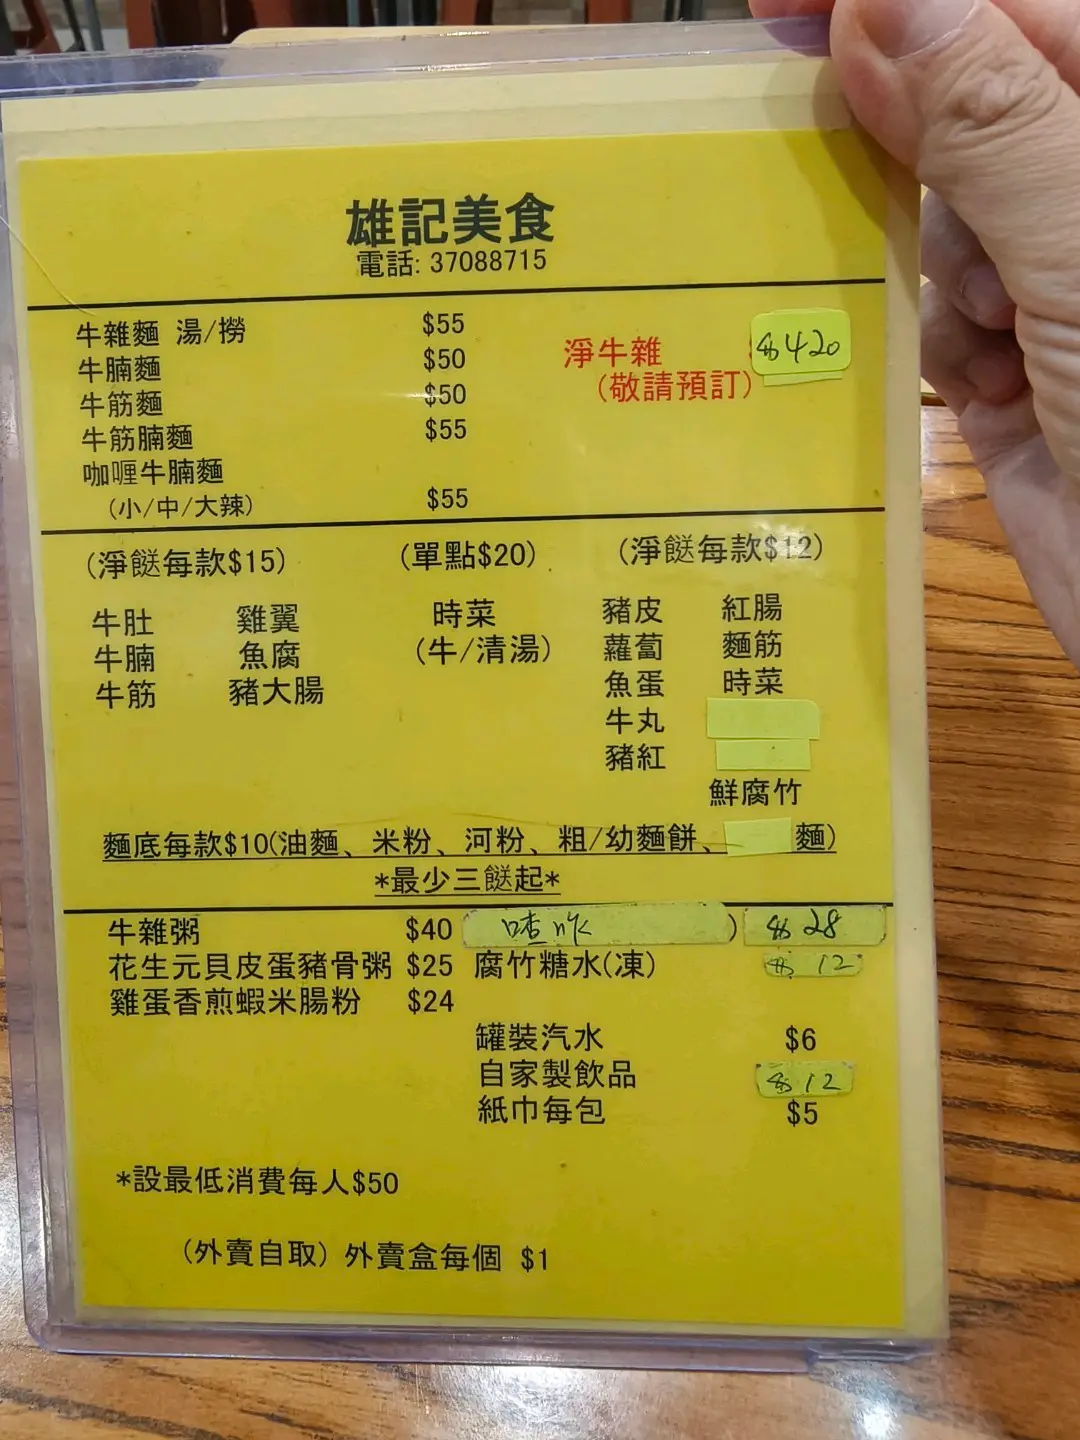 雄記美食
電話: 37088715
牛雜麵 湯/撈 $55
牛腩麵 $50
牛筋麵 $50
牛筋腩麵 $55
咖喱牛腩麵
(小/中/大辣) $55
淨牛雜 $420
(敬請預訂)
(淨餸每款$15)
牛肚 雞翼
牛腩 魚腐
牛筋 豬大腸
(單點$20)
時菜
(牛/清湯)
(淨餸每款$12)
豬皮 紅腸
蘿蔔 麵筋
魚蛋 時菜
牛丸
豬紅
鮮腐竹
麵底每款$10(油麵、米粉、河粉、粗/幼麵餅、 麵)
*最少三餸起*
牛雜粥 $40
花生元貝皮蛋豬骨粥 $25
雞蛋香煎蝦米腸粉 $24
喳咋 ) $28
腐竹糖水(凍) $12
罐裝汽水 $6
自家製飲品 $12
紙巾每包 $5
*設最低消費每人$50
(外賣自取) 外賣盒每個 $1